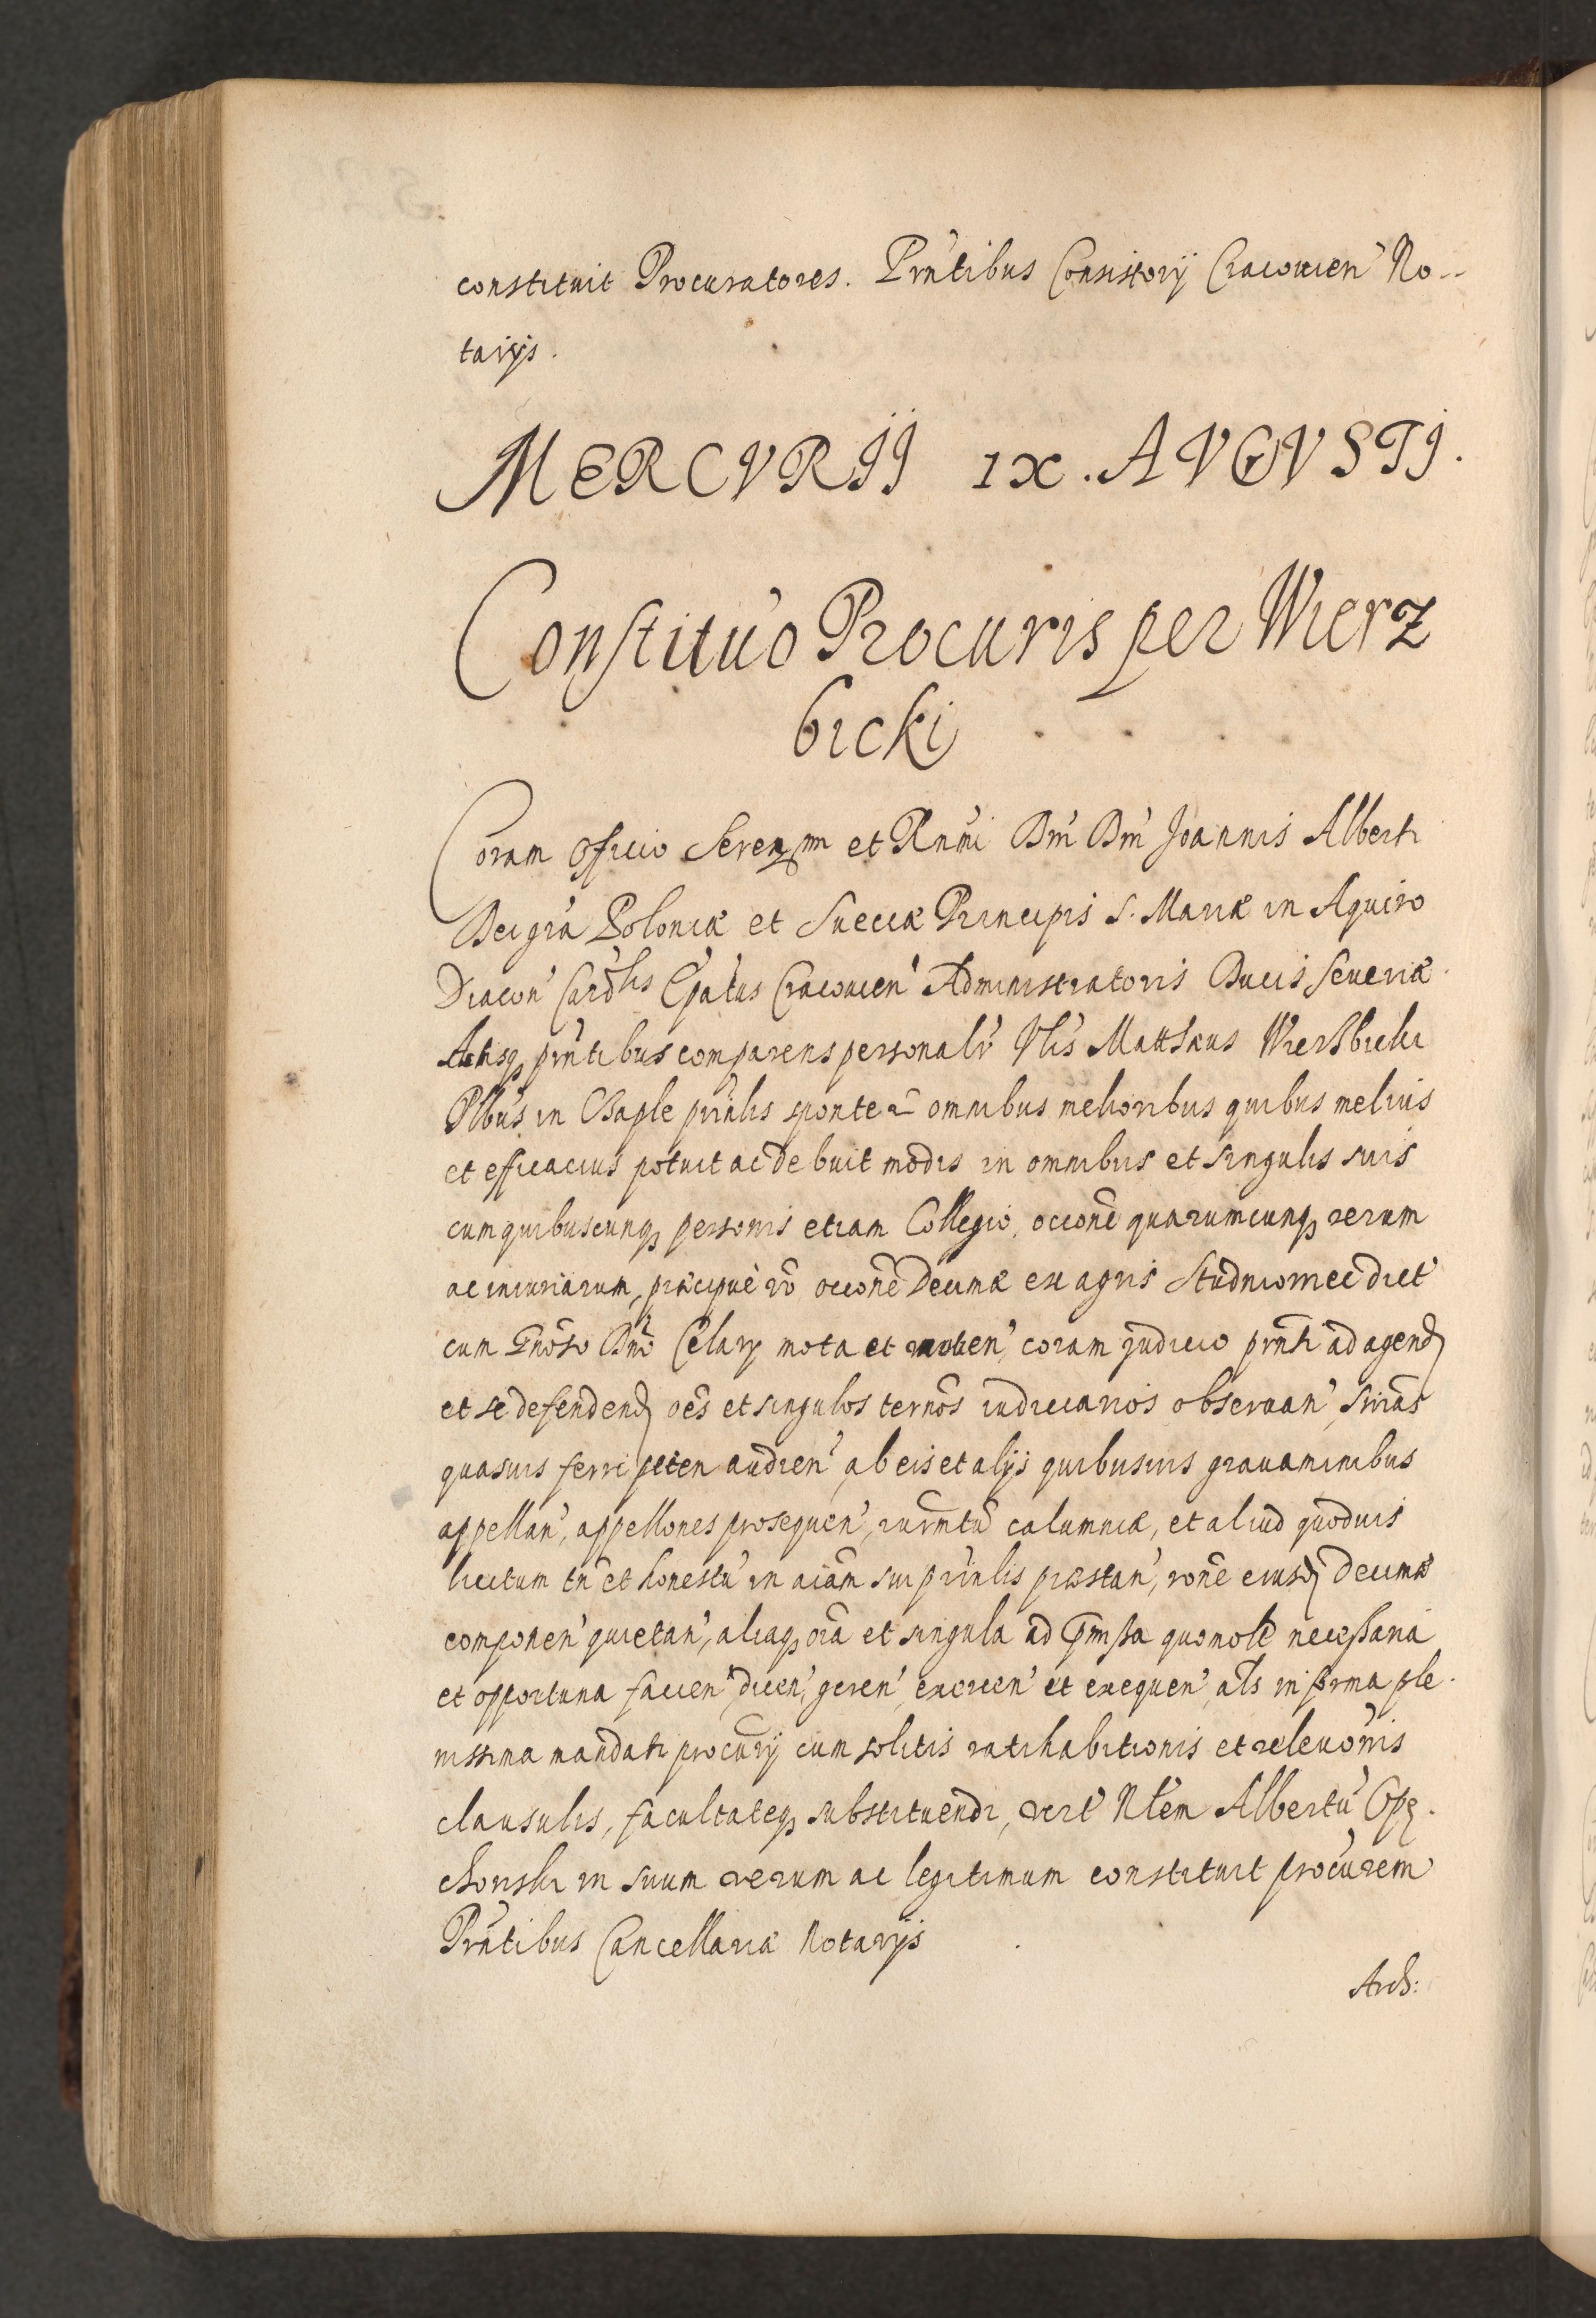 constituit Procuratores. Prńtibus Consistorÿ Cracovien̕ No--
tarÿs.
MERCVRII IX. AVGVSTI.
Constitũo Procuris per Wierz
bicki
Coram Officio Serenmi et Rnm̃i Dn̕i Dn̕i Joannis Alberti
Dei gr̃a Poloniæ et Sueciæ Principis S. Mariæ in Aquiro
Diacon̕ Cardlis Ep̃atus Cracovien̕ Administratoris Ducis Seueriæ.
Actisq prñtibus comparens personalr̕ Vl̕is Matthæus Wierßbicki
Plb̃us in Chaple prin̕lis sponte omnibus melioribus quibus melius
et efficacius potuit ac debuit modis in omnibus et singulis suis
cum quibuscunq personis etiam Collegio, occone quarumcunq rerum
ac iniuriarum, præcipuè võ occone Decimæ ex agris Studniowiec dict̕
cum Gnoso Dno Celarÿ mota et moven̕, coram judicio prnti ad agend
et se defendend oẽs et singulos termõs iudiciarios obseruan̕, sn̕ias
quasuis ferri peten audien̕, ab eis et alÿs quibusuis grauaminibus
appellan̕, appellones prosequen̕, iurm̃tũ calumniæ, et aliud quoduis
licitum tñ et honestũ in aĩam sui prin̕lis præstan̕, rone eiusd Decimæ
componen̕ quietan̕, aliaq oĩa et singula ad pmißa quomolt̕ necessaria
et opportuna facien̕, dicen̕, geren̕, exercen̕ et exequen̕, als̕ in forma ple-
nissima mandati procurÿ cum solitis ratihabitionis et releuonis
clausulis, facultateq substituendi, Nlem Albertũ Opẽ-
chowski in suum verum ac legitimum constituit procurem
Prñtibus Cancellariæ Notarÿs
Arch: